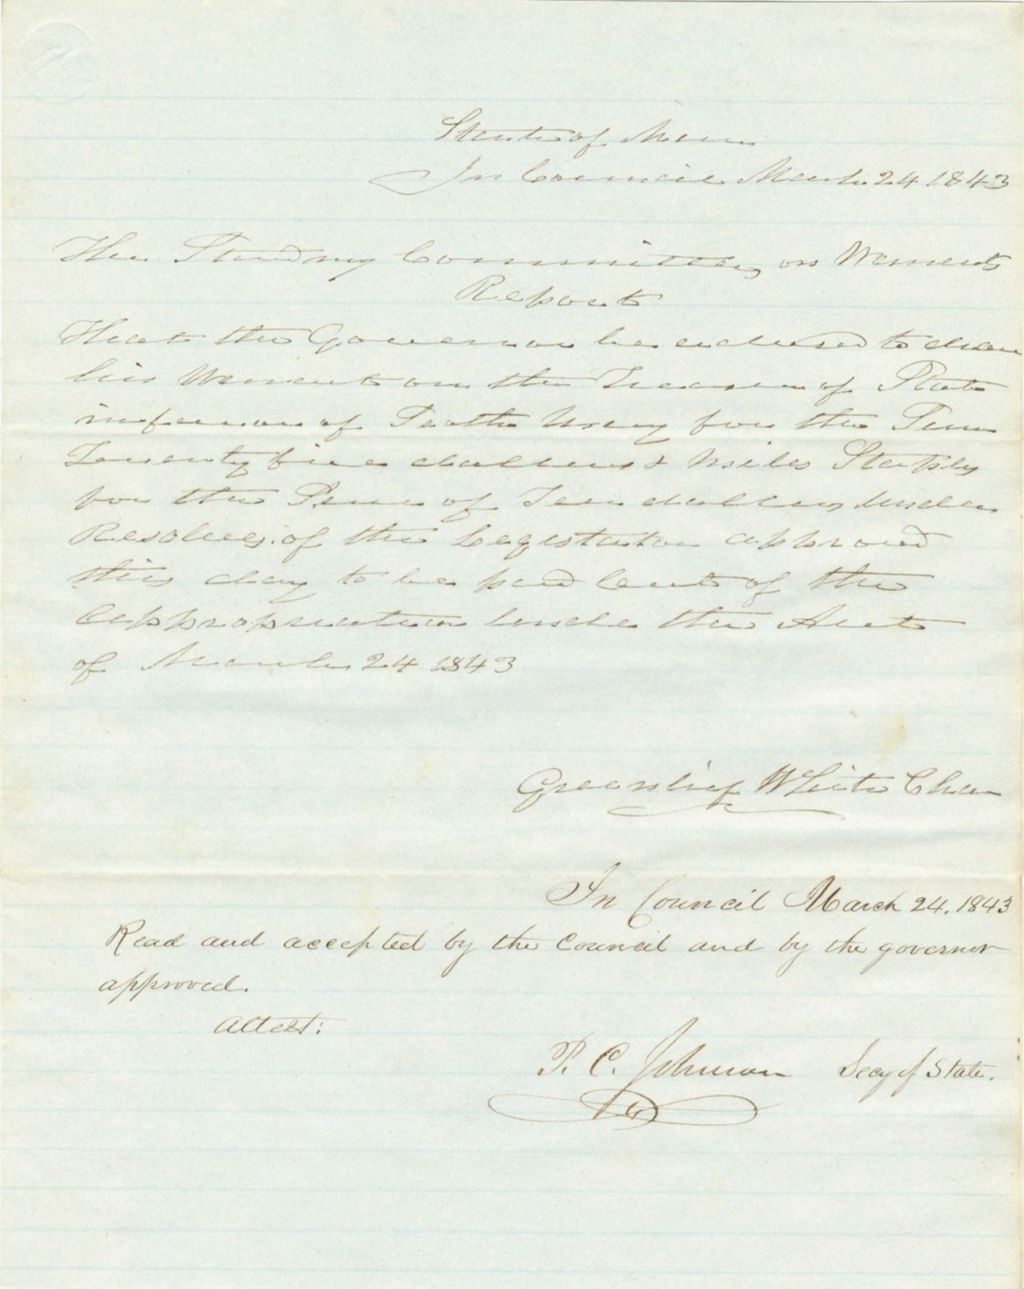 State of Maine
In Council March 24 1843
The Standing Committee on Warrants
Report
That the Governor be advised to draw
his Warrant on the Treasurer of State
in favour of for the Sum
Twenty five dollars & Miles Staply
for the Sum of Ten dollars under
Resolves of the Legislature approved
this day to be paid out of the
appropriation under the Act
of March 24 1843
Greenlief White Chair
In Council March 24, 1843
Read and accepted by the Council and by the governor
approved.
Attest:
P. C. Johnson Secy of State.